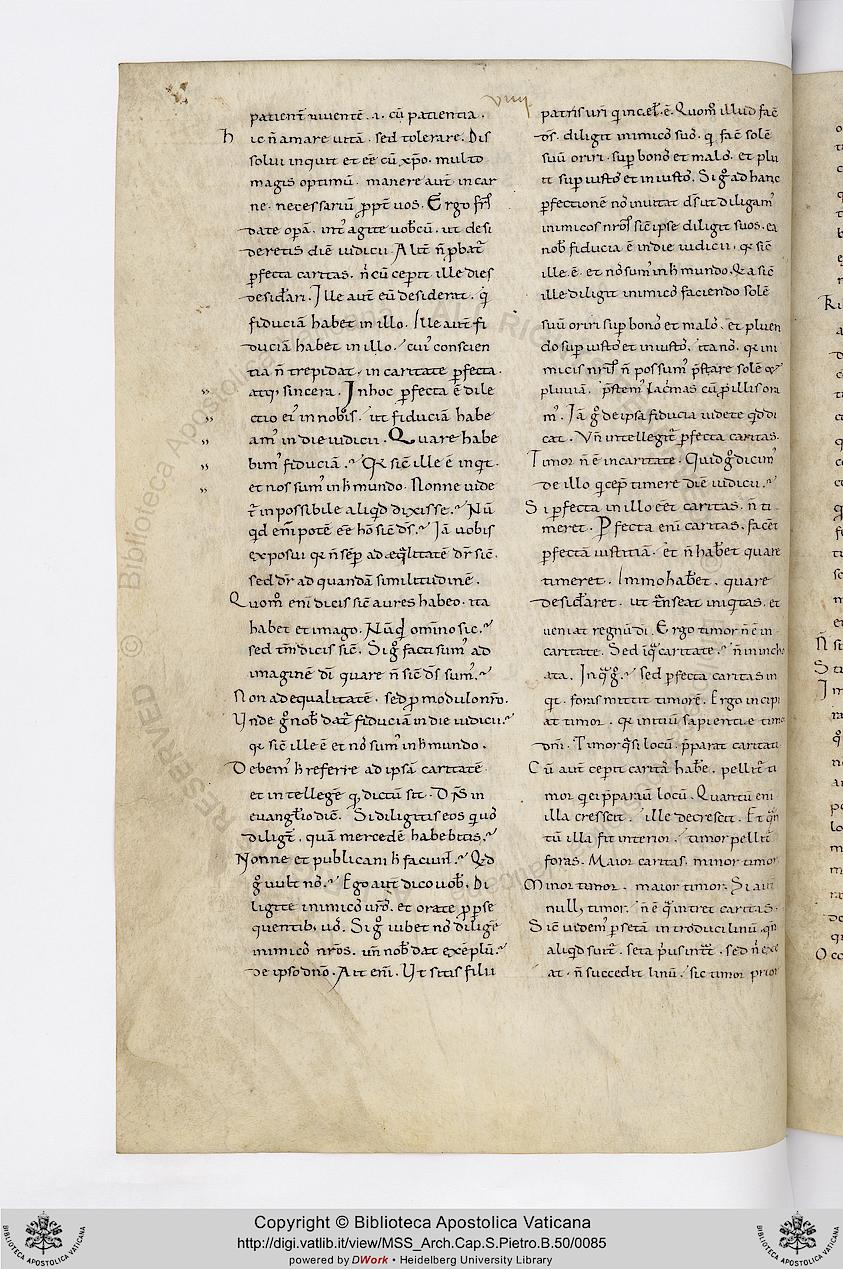 viiii
patient uiuentē .i. cū patientia.
hic n̄ amare uitā. sed tolerare. Dis
solui inquit et eē cū xp̄o. multo
magis optimū. manere aut̄ in car
ne. necessariū ꝓpt̄ uos. Ergo frs̄
date operā. int' agite uobcū. ut desi
deretis diē iudicii. Alit̄ n̄ ꝓbat'
ꝑfecta caritas. n̄ cū ceperit ille dies
desiderari. Ille aut̄ eū desiderat. qi
fiduciā habet in illo. Ille aut̄ fi
duciā habet in illo. cui' conscien
tia n̄ trepidat. in caritate ꝑfecta.
atq; sincera. In hoc ꝑfecta ē dile
ctio ei' in nobis. ut fiduciā habe
am' in die iudicii. Quare habe
bim' fiduciā. Qr̄ sic̄ ille ē inqt.
et nos sum' in h̄ mundo. Nonne uide
t' inpossibile aliqd̄ dixisse. Nū
qd̄ eni' potē eē hō sic̄ ds̄. Iā uobis
exposui qr̄ n̄ sēp ad eq̄litatē dr̄ sic̄.
sed dr̄ ad quandā similitudinē.
Quom̄ eni' dicis sic̄ aures habeo. ita
habet et imago. Nūqd̄ omino sic.
sed tm̄ dicis sic̄. Si ḡ facti sum' ad
imaginē dī quare n̄ sic̄ ds̄ sum'.
Non ad equalitatē. sed ꝓ modulo nr̄o.
Unde ḡ nob̄ dat' fiduciā in die iudicii.
qr̄ sic̄ ille ē et no' sum' in h̄ mundo.
Debem' h̄ referre ad ipsā caritatē
et intellegē qd̄ dictū sit. Dn̄s in
euangl̄io dic̄. Si diligitis eos qi uo'
diligt̄. quā mercedē habebitis.
Nonne et publicani h̄ faciunt. Qd̄
ḡ uult no'. Ego aut̄ dico uob̄. Di
ligite inimico' uro'. et orate ꝓ ꝑse
quentib; uo'. Si ḡ iubet no' diligē
inimico' nro's. un̄ nob̄ dat exēplū.
de ipso dn̄o. Ait eni'. Ut sitis filii
patris uri' qi in cel̄' ē. Quom̄ illud fac̄
ds̄. diligit inimico' suo'. qi fac̄ solē
suū oriri. suꝑ bono' et malo'. et plu
it suꝑ iusto' et iniusto'. Si ḡ ad hanc
ꝑfectionē no' inuitat ds̄ ut diligam'
inimicos nro's sic̄ ipse diligit suos. ea
nob̄ fiducia ē in die iudicii. qr̄ sic̄
ille ē. et no' sum' in h̄ mundo. Qr̄a sic̄
ille diligit inimico' faciendo solē
suū oriri suꝑ bono' et malo'. et pluen
do suꝑ iusto' et iniusto'. ita no'. qr̄ ini
micis nris' n̄ possum' p̄stare solē et
pluuiā. p̄stem' lacrimas cū ꝓ illis ora
m'. Iā ḡ de ipsa fiducia uidete qd̄ di
cat. Un̄ intellegit' ꝑfecta caritas.
Timor n̄ ē in caritate. Quid ḡ dicim'
de illo qi cep̄ timere diē iudicii.
Si ꝑfecta in illo ēet caritas. n̄ ti
meret. Perfecta eni' caritas. facēt
ꝑfectā iustitiā. et n̄ haberet quare
timeret. Immo haberet. quare
desideraret. ut trn̄seat iniqitas. et
ueniat regnū dī. Ergo timor n̄ ē in
caritate. Sed iq̄ caritate. n̄ in incho
ata. In q̄ ḡ. sed ꝑfecta caritas in
qt. foras mittit timorē. Ergo incipi
at timor. qr̄ initiū sapientie timor
dn̄i. Timor q̄si locū p̄parat caritati.
Cū aut̄ ceperit caritas habē. pellit' ti
mor qi ei p̄parauit locū. Quantū eni'
illa crescit. ille decrescit. Et qn̄
tū illa fit interior. timor pellit'
foras. Maior caritas. minor timor.
Minor timor. maior timor. Si aut̄
null; timor. n̄ ē q̄ intret caritas.
Sic̄ uidem' ꝑ setā introduci linū. qn̄
aliqd̄ suit'. seta pri'us intrat. sed n̄ exe
at. n̄ succedit linū. sic timor prior